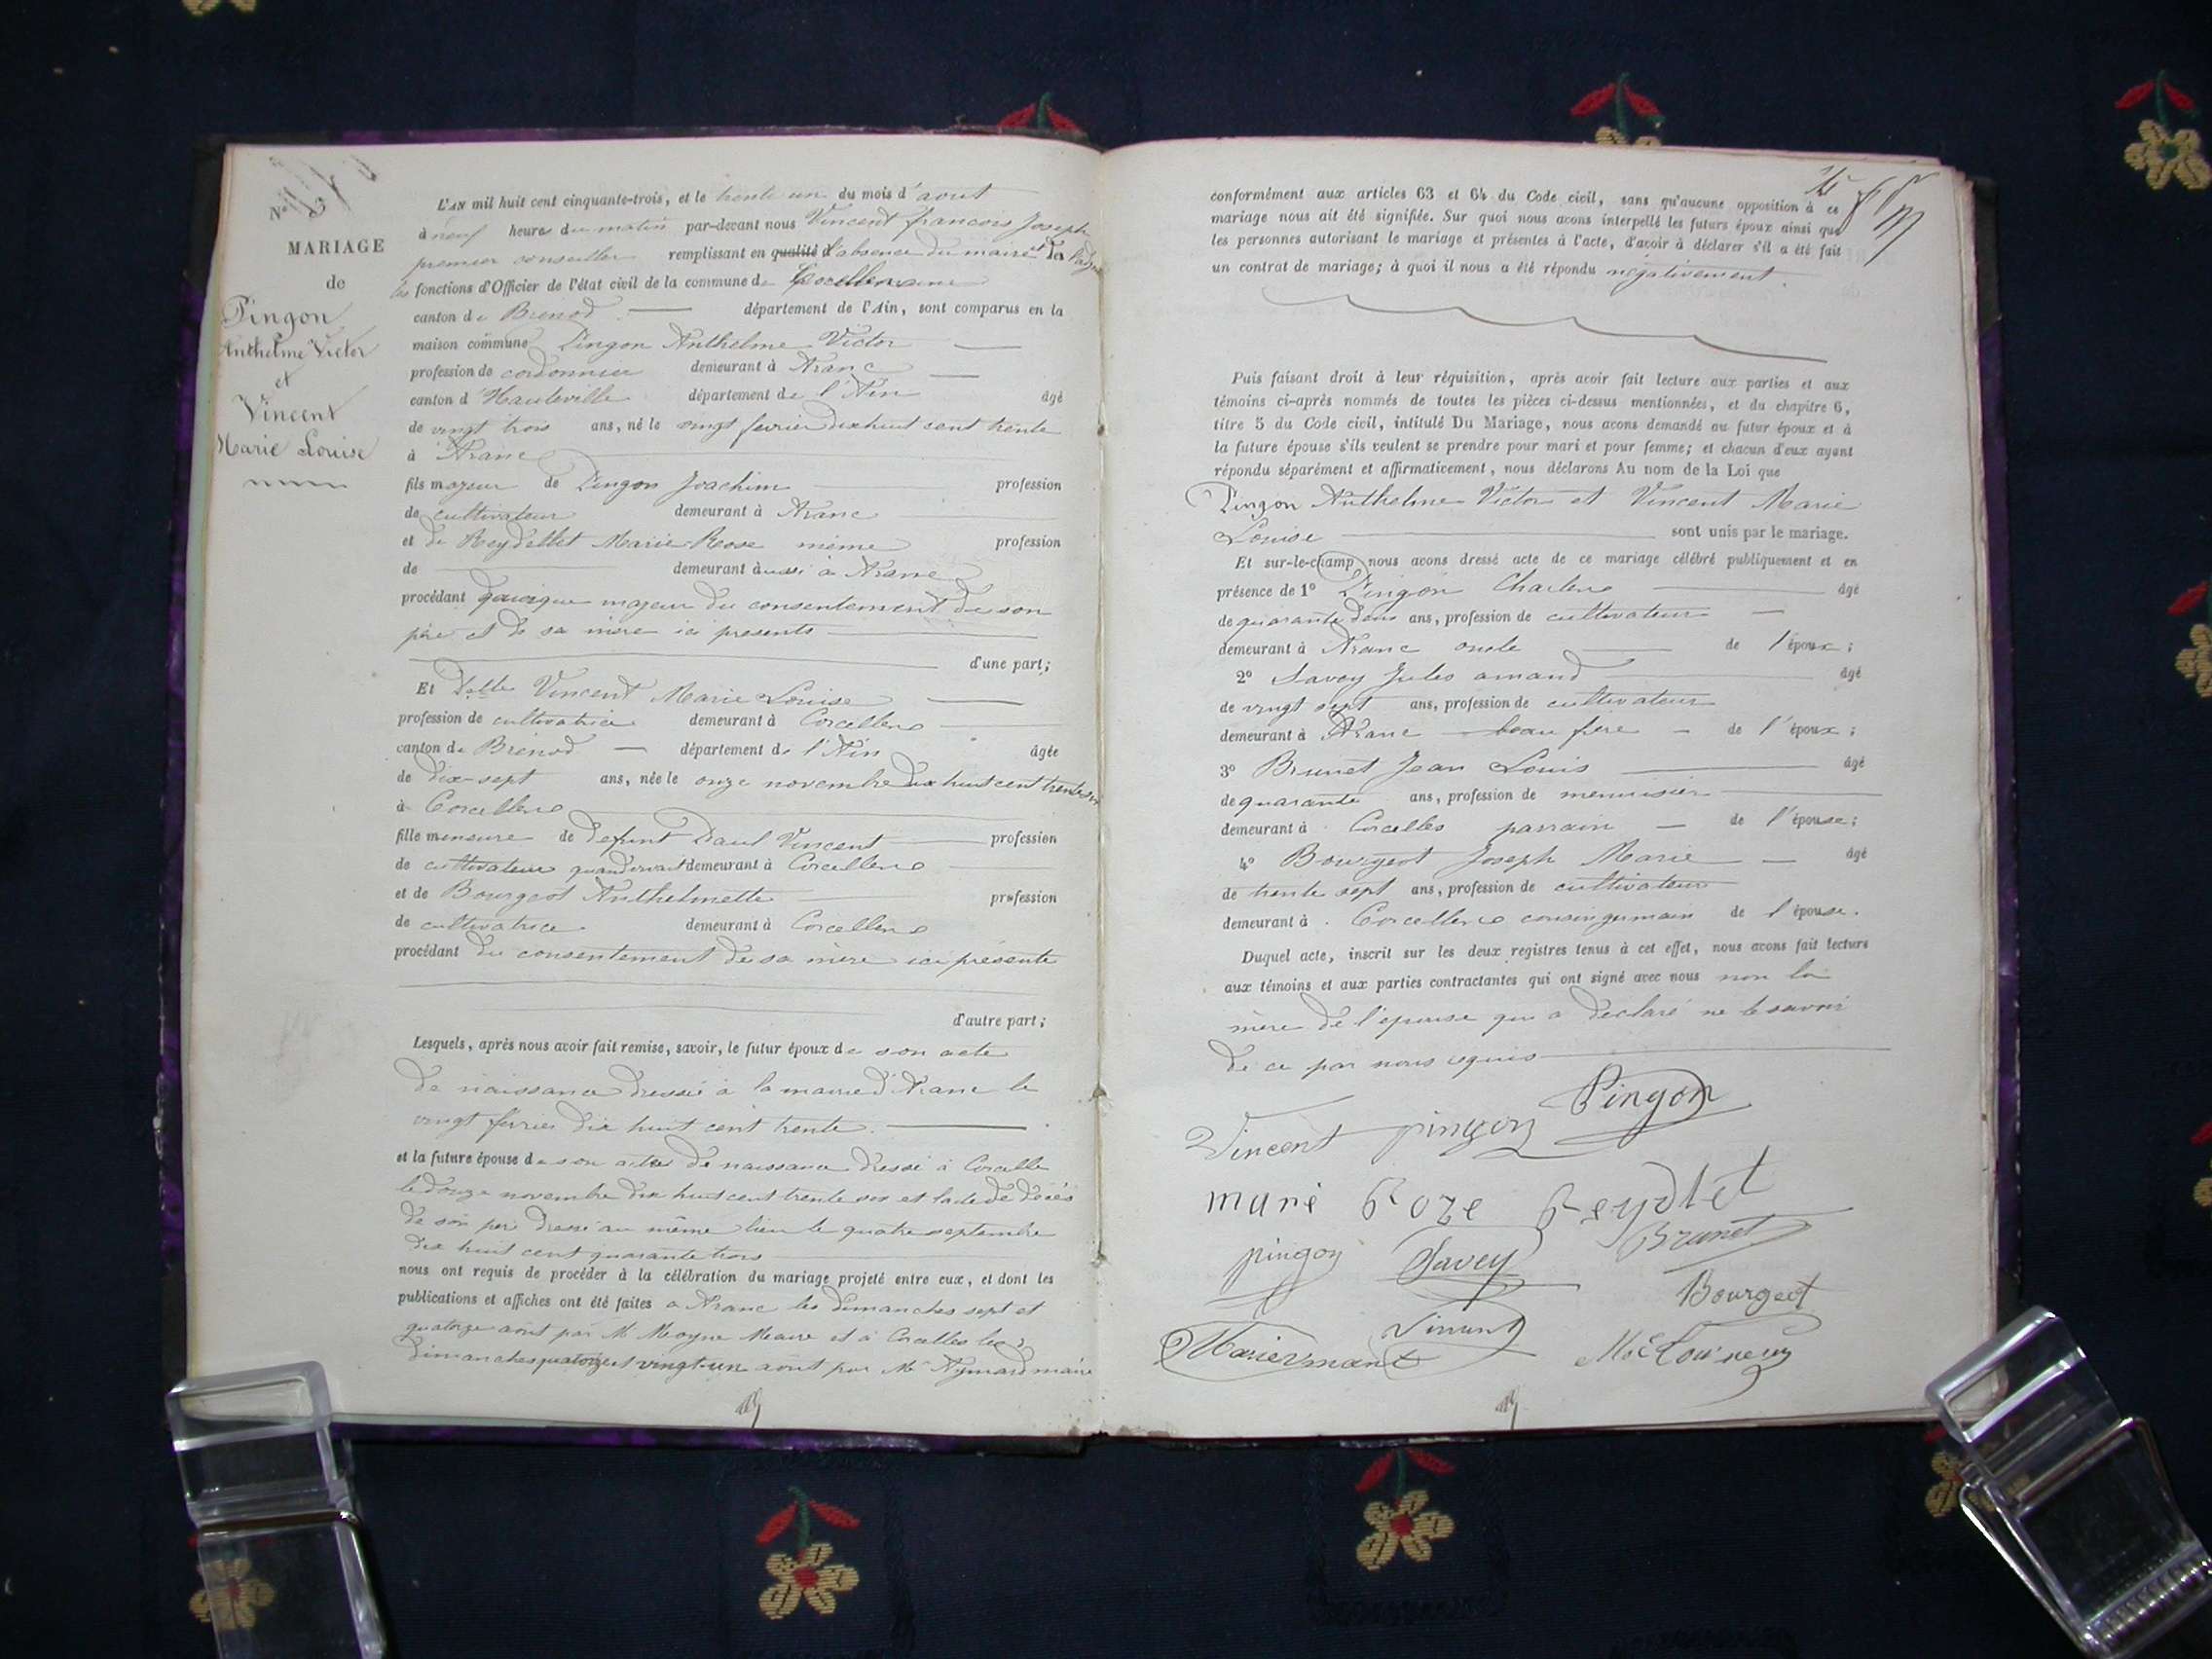 N°
MARIAGE
de
Pingon
Anthelme Victor
et
Vincent
Marie Louise
L'AN mil huit cent cinquante-trois, et le trente un du mois d'aout
à neuf heures du matin par-devant nous Vincent francois Joseph
premier conseiller remplissant en qualité d'absence du maire et de l'adj
les fonctions d'Officier de l'état civil de la commune de Corcelles
canton de Brenod département de l'Ain, sont comparus en la
maison commune Pingon Anthelme Victor
profession de cordonnier demeurant à Aranc
canton d'Hauteville département de l'Ain âgé
de vingt trois ans, né le vingt fevrier dix huit cent trente
à Aranc
fils majeur de Pingon Joachim profession
de cultivateur demeurant à Aranc
et de Reydellet Marie Rose même profession
de demeurant aussi à Aranc
procédant quoique majeur du consentement de son
père et de sa mère ici presents
d'une part;
Et Delle Vincent Marie Louise
profession de cultivatrice demeurant à Corcelles
canton de Brénod département de l'Ain âgée
de dix-sept ans, née le onze novembre dix huit cent trente six
à Corcelles
fille mineure de defunt Paul Vincent profession
de cultivateur quand vivait demeurant à Corcelles
et de Bourgeot Anthelmette profession
de cultivatrice demeurant à Corcelles
procédant du consentement de sa mère ici présente
d'autre part;
Lesquels, après nous avoir fait remise, savoir, le futur époux de son acte
de naissance dressé à la mairie d'Aranc le
vingt fevrier dix huit cent trente.
et la future épouse de son acte de naissance dressé à Corcelle
le douze novembre dix huit cent trente six et l'acte de décès
de son père dressé au même lieu le quatre septembre
dix huit cent quarante trois
nous ont requis de procéder à la célébration du mariage projeté entre eux, et dont les
publications et affiches ont été faites à Aranc les dimanches sept et
quatorze août par M. Moyne Maire et à Corcelles les
dimanches quatorze et vingt-un août par Mr Aymard maire
conformément aux articles 63 et 64 du Code civil, sans qu'aucune opposition à ce
mariage nous ait été signifiée. Sur quoi nous avons interpellé les futurs époux ainsi que
les personnes autorisant le mariage et présentes à l'acte, d'avoir à déclarer s'il a été fait
un contrat de mariage; à quoi il nous a été répondu négativement.
Puis faisant droit à leur réquisition, après avoir fait lecture aux parties et aux
témoins ci-après nommés de toutes les pièces ci-dessus mentionnées, et du chapitre 6,
titre 5 du Code civil, intitulé Du Mariage, nous avons demandé au futur époux et à
la future épouse s'ils veulent se prendre pour mari et pour femme; et chacun d'eux ayant
répondu séparément et affirmativement, nous déclarons Au nom de la Loi que
Pingon Anthelme Victor et Vincent Marie
Louise sont unis par le mariage.
Et sur-le-champ nous avons dressé acte de ce mariage célébré publiquement et en
présence de 1° Pingon Charles âgé
de quarante deux ans, profession de cultivateur
demeurant à Aranc oncle de l'époux;
2° Savey Jules amand âgé
de vingt sept ans, profession de cultivateur
demeurant à Aranc beau frere de l'époux;
3° Brunet Jean Louis âgé
de quarante ans, profession de menuisier
demeurant à Corcelles parrain de l'épouse;
4° Bourgeot Joseph Marie âgé
de trente sept ans, profession de cultivateur
demeurant à Corcelles cousin germain de l'épouse.
Duquel acte, inscrit sur les deux registres tenus à cet effet, nous avons fait lecture
aux témoins et aux parties contractantes qui ont signé avec nous non la
mère de l'épouse qui a declaré ne le savoir
de ce par nous requis
Vincent pingon Pingon
marie Roze Reydlet
pingon Savey Brunet
Bourgeot
Vincent